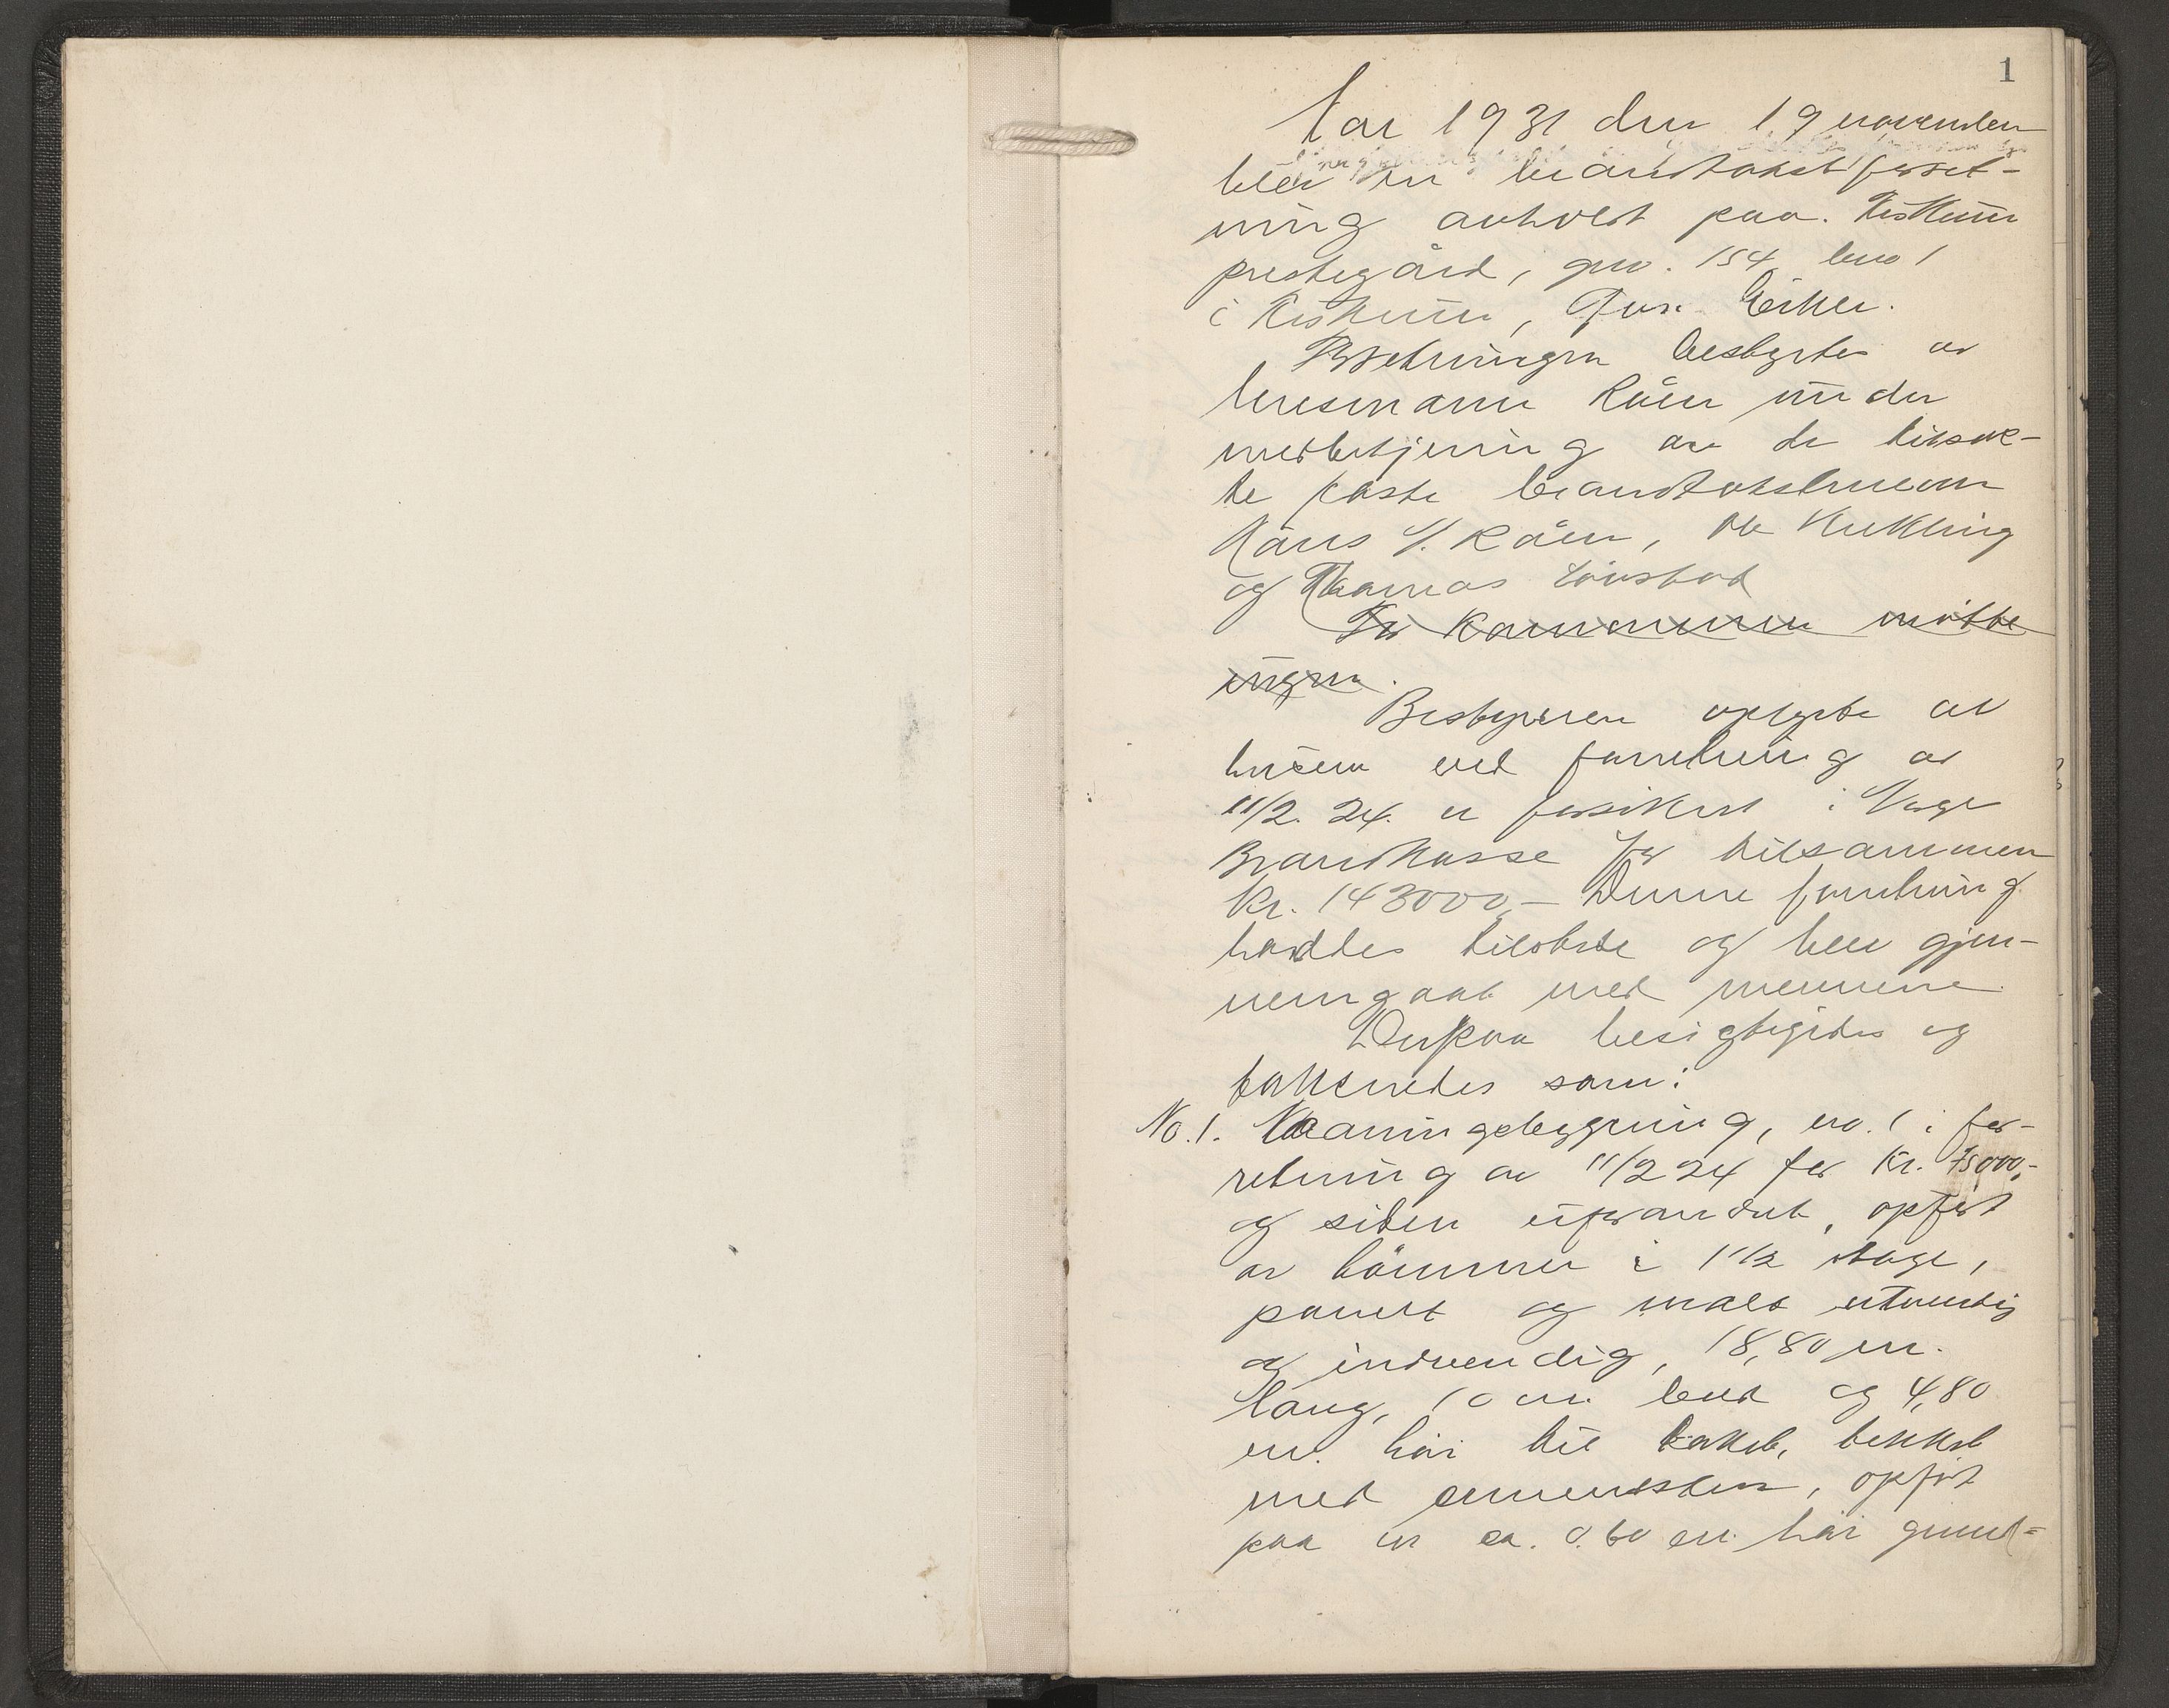 1
Aar 1931 den 19 november
blev en brandtakstforret-
ning avholdt paa Fiskum
prestegård, gno. 154 bno 1
i Fiskum, Øvre Eiker.
Retningen bestyrtes av
lensmann Råen under
medbetjening av de tilsak-
te faste brandtakstmenn
Hans Råen, Ole
og Thomas
For kommunen møtte
ingen.
Bestyreren oplyste at
husene ved forretning av
11/2. 24. er forsikret i Norges
Brandkasse for tilsammen
kr. 143000,- Denne forretning
havdes tilstede og blev gjen-
nemgaat med mennene.
Derpaa besigtigedes og
takseredes som:
No. 1. Vaaningsbygning, no. 1 i for-
retning av 11/2 24 for kr. 75000,-
og siden uforandret, opført
av tømmer i 1 1/2 etage,
panelt og malt utvendig
og indvendig, 18,80 m.
lang, 10 m. bred og 4,80
m. høi til taket, tekket
med sementsten, opført
paa en ca. 0.60 m. høi grund-